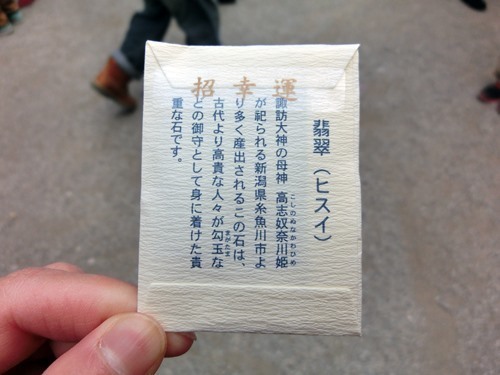 招幸運
翡翠（ヒスイ）
諏訪大神の母神　高志奴奈川姫
こしのぬなかわひめ
が祀られる新潟県糸魚川市よ
り多く産出されるこの石は、
古代より高貴な人々が勾玉な
まがたま
どの御守として身に着けた貴
重な石です。